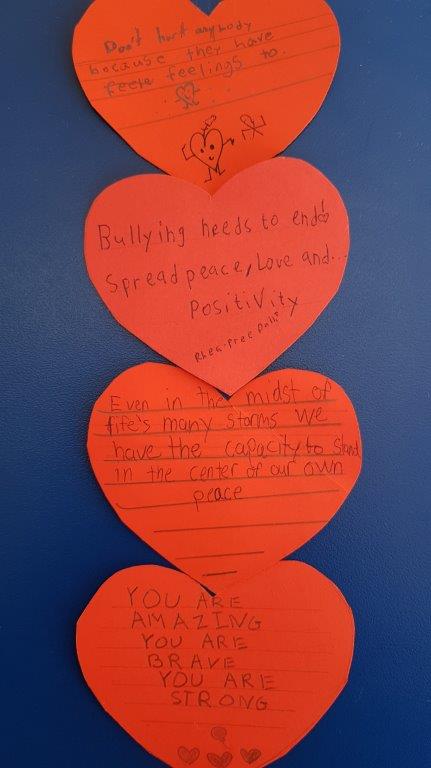 Don't hurt anybody
because they have
feele feelings to.
Bullying needs to end!
Spread peace, Love and...
Positivity
Even in the midst of
life's many storms we
have the capacity to stand
in the center of our own
peace
YOU ARE
AMAZING
YOU ARE
BRAVE
YOU ARE
STRONG